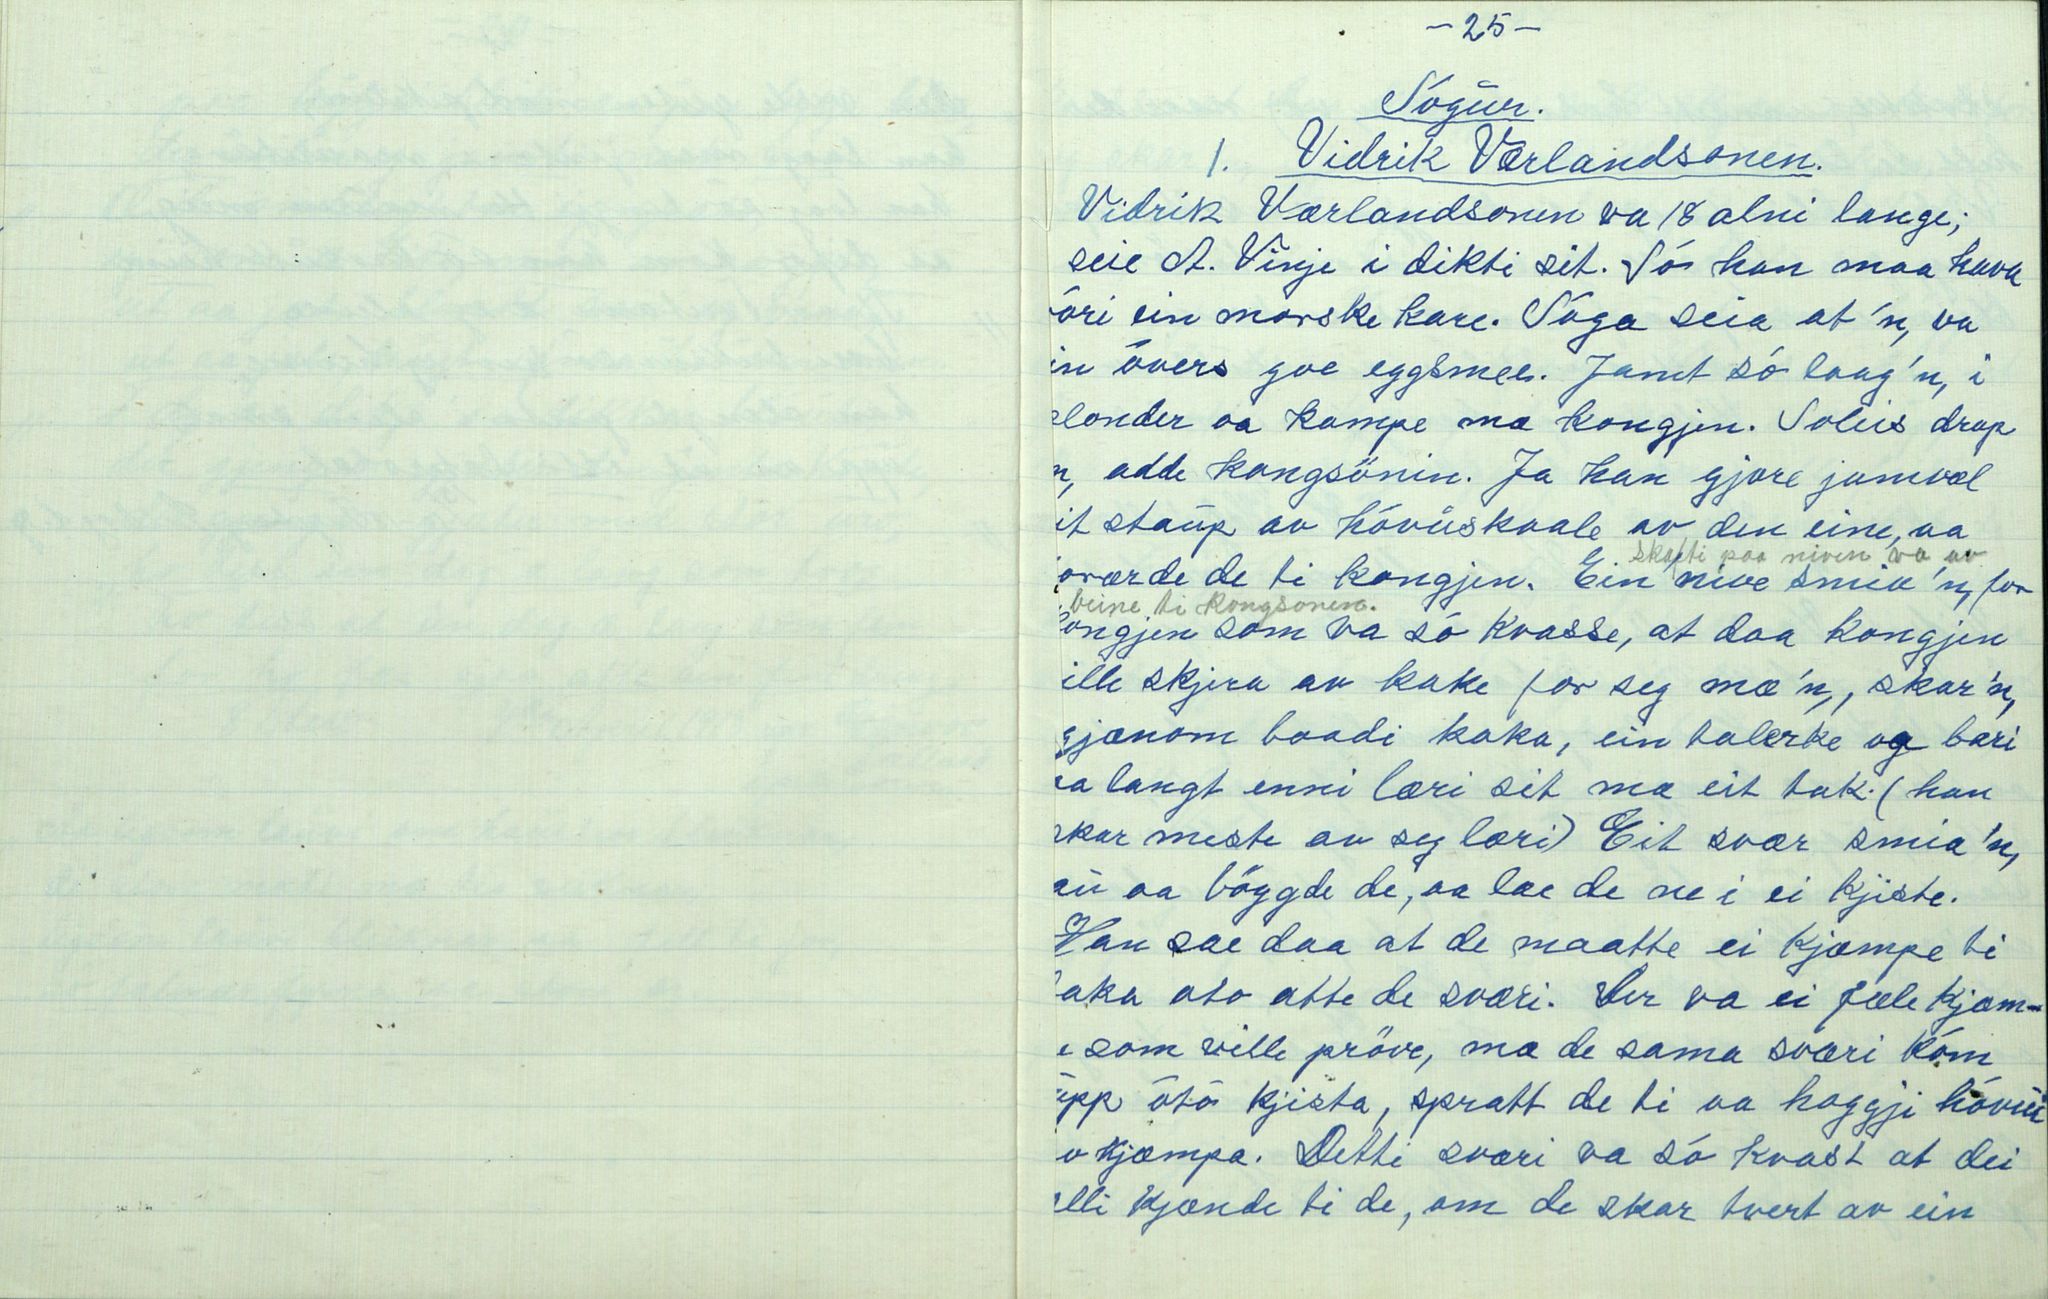 -25-
Sógur.
1. Vidrik Værlandsonen.
Vidrik Værlandsonen va 18 alni lange;
seie A. Vinje i dikti sit. Só han maa hava
vóri ein morske kare. Sóga seia at'n, va
in óvers goe eggsmee. Jamt só laag'n, i
elonder aa kampe mæ kongjen. Soleis drap
n, adde kongsönin. Ja han gjore jamvæl
it staup av hóvúskaale av den eine, aa
oværde de ti kongjen. Ein nive smia'n, for
skafti paa niven va av
beine ti kongsonen.
kongjen som va só kvasse, at daa kongjen
ille skjera av kake for seg mæ'n,, skar'n,
gjænom baadi kaka, ein talerke og bæri
aa langt enni læri sit mæ eit tak. (han
skar meste av seg læri) Eit svær smia'n,
au aa böygde de, aa lae de ne i ei kjiste.
Han sae daa at de maatte ei kjæmpe ti
taka oto atte de sværi. Der va ei fæle kjæm-
e som ville pröve, mæ de sama sværi kóm
upp ótó kjista, spratt de ti aa hoggji hóvúi
v kjæmpa. Detti sværi va só kvast at dei
elli kjænde ti de, om de skar tvert av ein